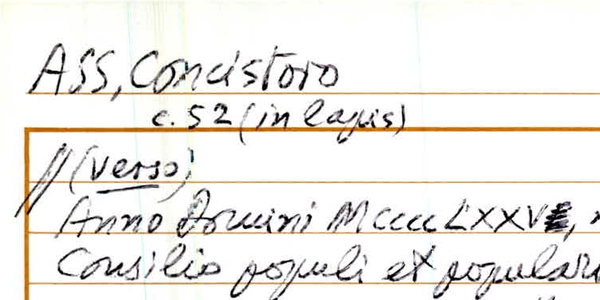 ASS, Concistoro
c. 52 (in lapis)
// (verso)
Anno Domini MCCCCLXXV
Consilio populi et popular